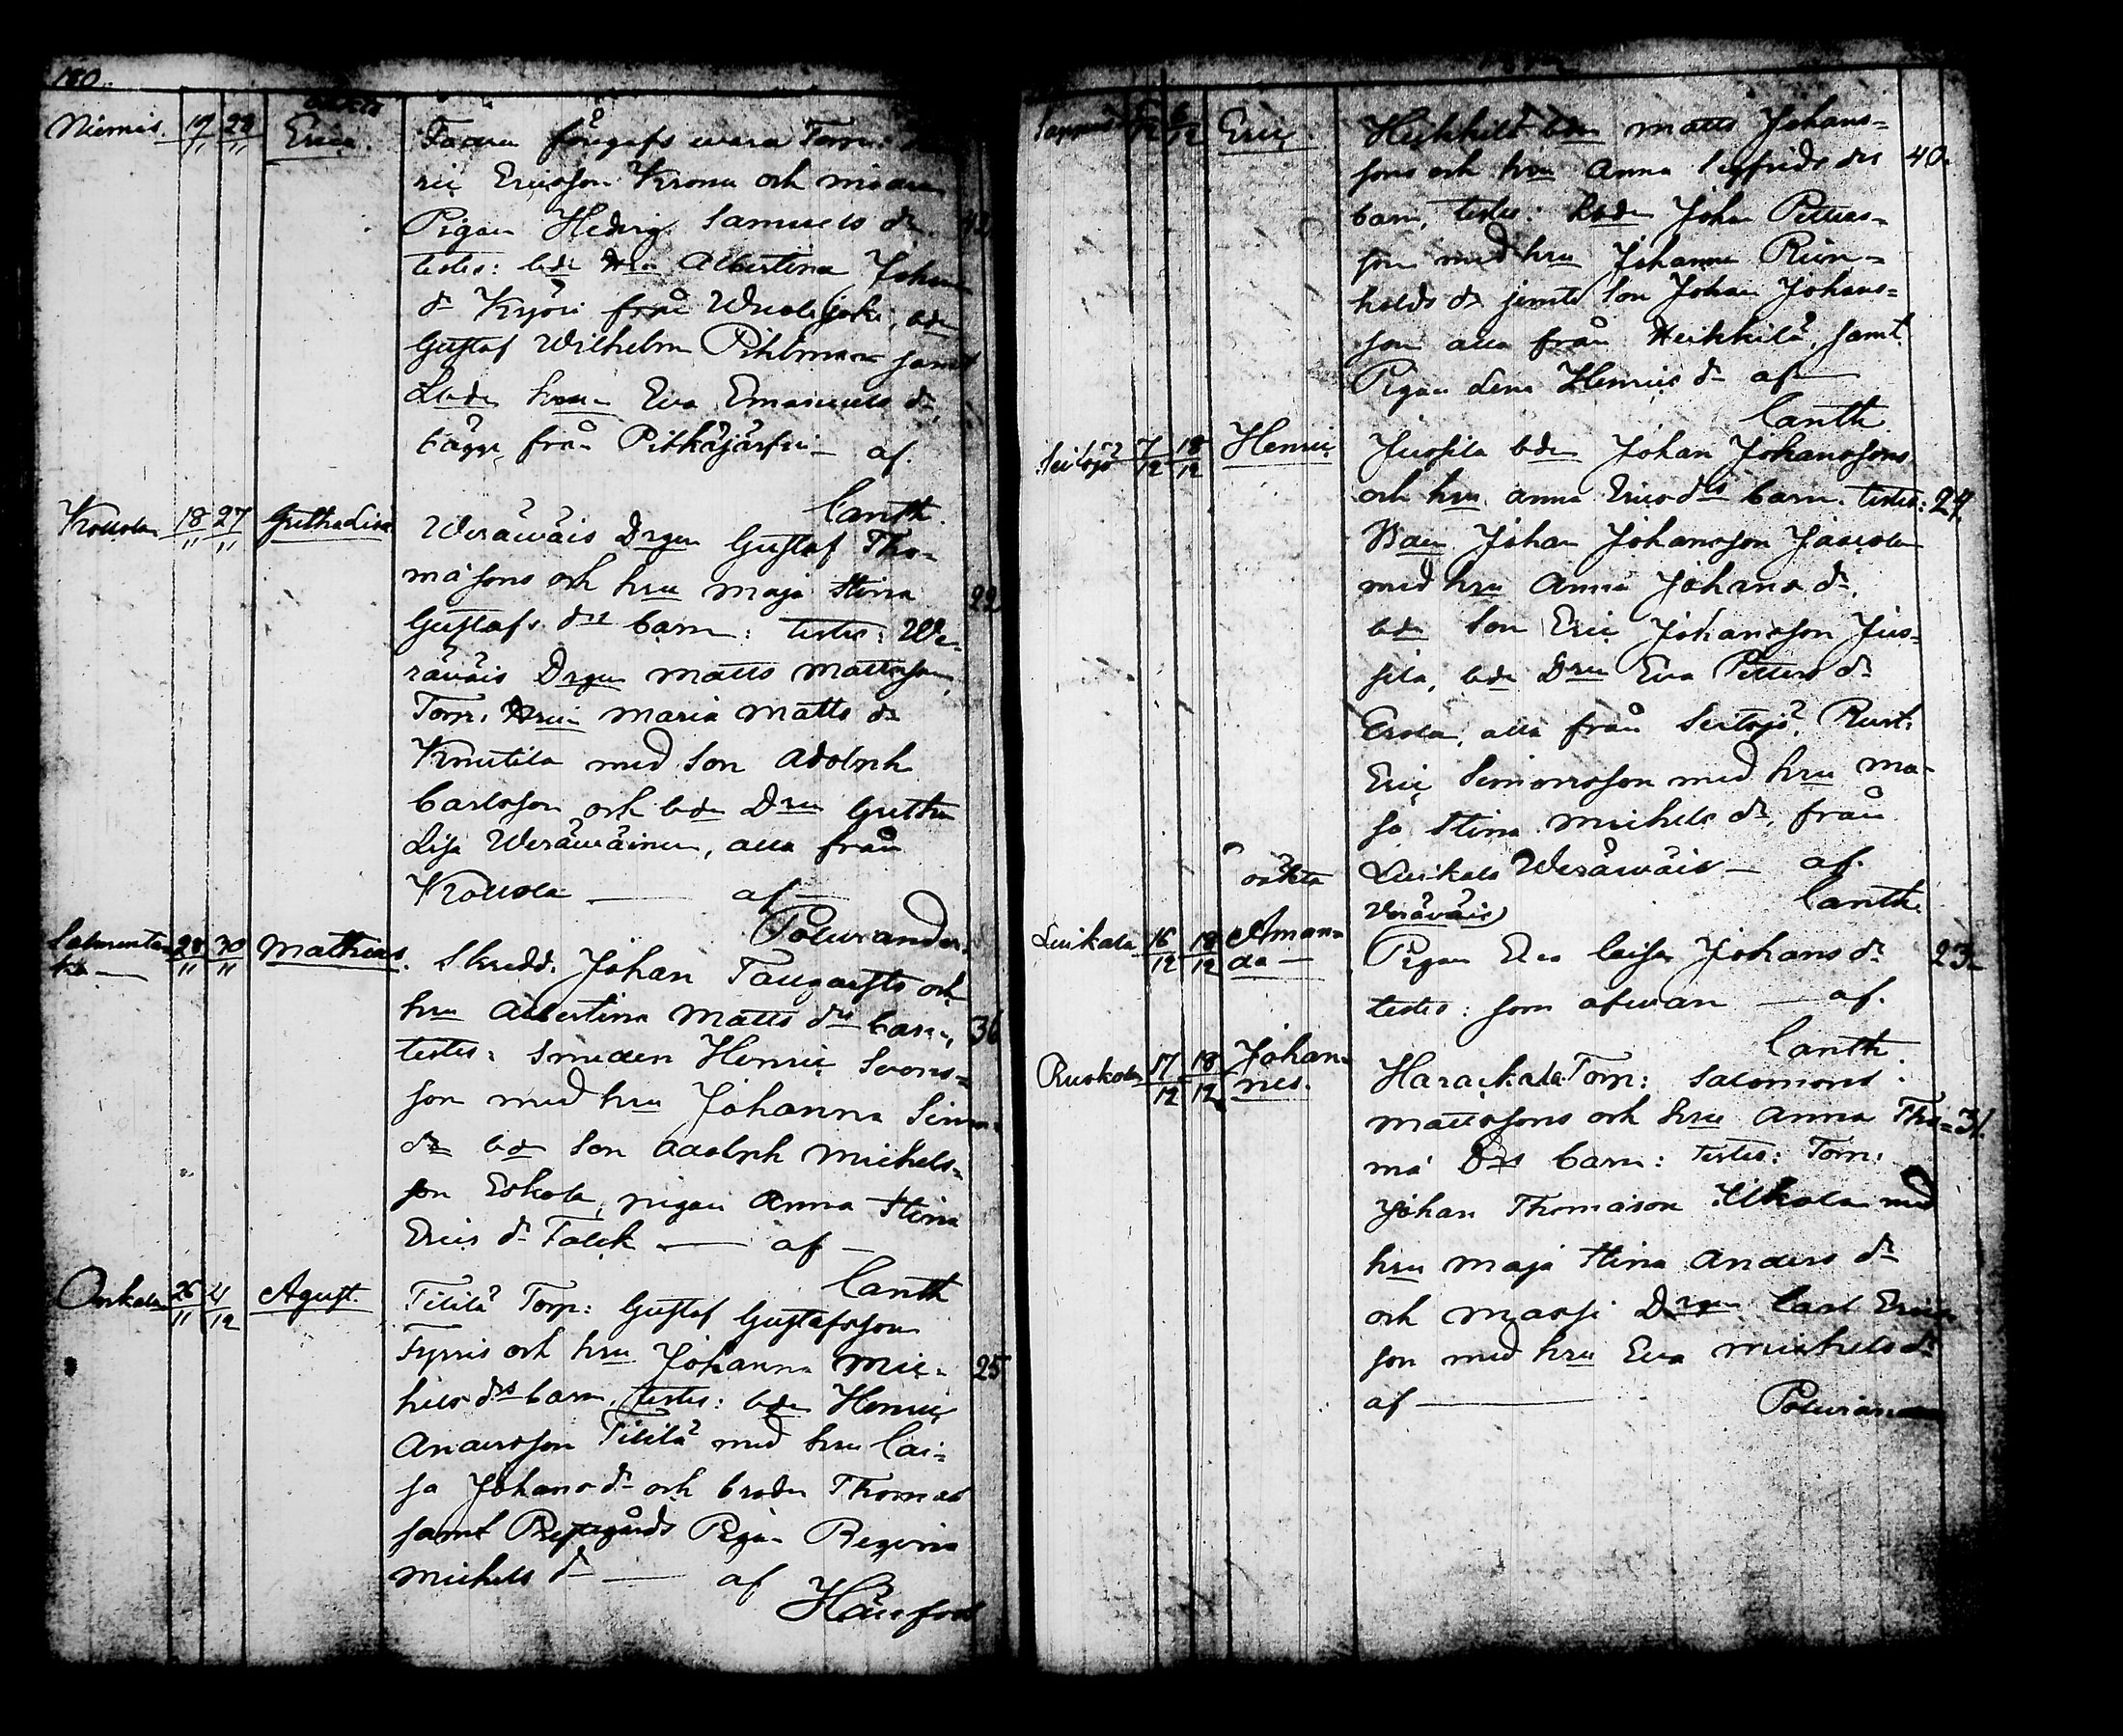 180.
oäkta
Niemis. 19/11 28/11 Erica. Fadren föregafs wara Torp:
ric Ericsson Kronu och modren
Pigan Hedvig Samuels dr. 42.
testes: bde Hru Albertina Johans
dr Kyöri från Wuolijoki, bde
Gustaf Wilhelm Pihlman samt
Lbde hru Eva Emanuels dr,
från Pitkäjärfvi — af.
Canth.
Kouvola 18/11 27/11 Gretha Lisa Weräwäis Drgn Gustaf Tho-
mæsons och hru Maja Stina 22
Gustafs drs barn: testes: We-
räwäis Drgn Matts Mattsson,
Torp: Hru Maria Matts dr
Knutila med Son Adolph
Carlsson och bde Dru Gretha
Lisa Weräwäinen, alla från
Kouvola — af —
Polviander.
Salmenta-
ka — 28/11 30/11 Mathias. Skredd: Johan Taugqvists och
hru Albertina Matts drs barn, 36
testes: Smeden Henric Svens-
son med hru Johanna Simons
dr bde Son Adolph Michels-
son Eskola, pigan Anna Stina
Erics dr Falck — af —
Canth
Onkala 26/11 4/12 Agust. Titilä Torp: Gustaf Gustafsson
Fyris och hru Johanna Mic- 25
hels drs barn, testes: bde Henric
Andersson Titilä med hru Cai-
sa Johans dr och broder Thomas
samt Prestgårds Pigan Regina
Michels dr — af
Hänfors
Sappee /12 /12 Eric. Heikkilä bde Matts Johans-
sons och hru Anna Sigfrids drs 40.
barn, testes: Rbde Johan Petters-
son med hru Johanna Rein-
holds dr jemte Son Johan Johans-
son alla från Heikkilä, samt
Pigan Lena Henrics dr af —
Canth.
Seitsjö 7/12 18/12 Henric Jussila bde Johan Johanssons
och hru Anna Erics drs barn. testes: 24.
Johan Johansson Jaacola
med hru Anna Johans dr,
bde Son Eric Johansson Jus-
sila, bde Dru Eva Petters dr
Erola, alla från Seitsjö, Rust:
Eric Simonsson med hru Ma-
ja Stina Michels dr, från
Luikala Weräwäis — af.
Canth.
oäkta Weräwäis
Luikala 16/12 18/12 Aman-
da — Pigan Eva Caisa Johans dr 23.
testes: som ofwan — af.
Canth.
Ruskola 17/12 18/12 Johan-
nes. Harackala Torp: Salomons
Mattssons och hru Anna Tho- 31.
mæ Drs barn: testes: Torp:
Johan Thomason Ilkala med
hru Maja Stina Anders dr
och Drgn Carl Erics-
son med hru Eva Michels dr
af — Polviander